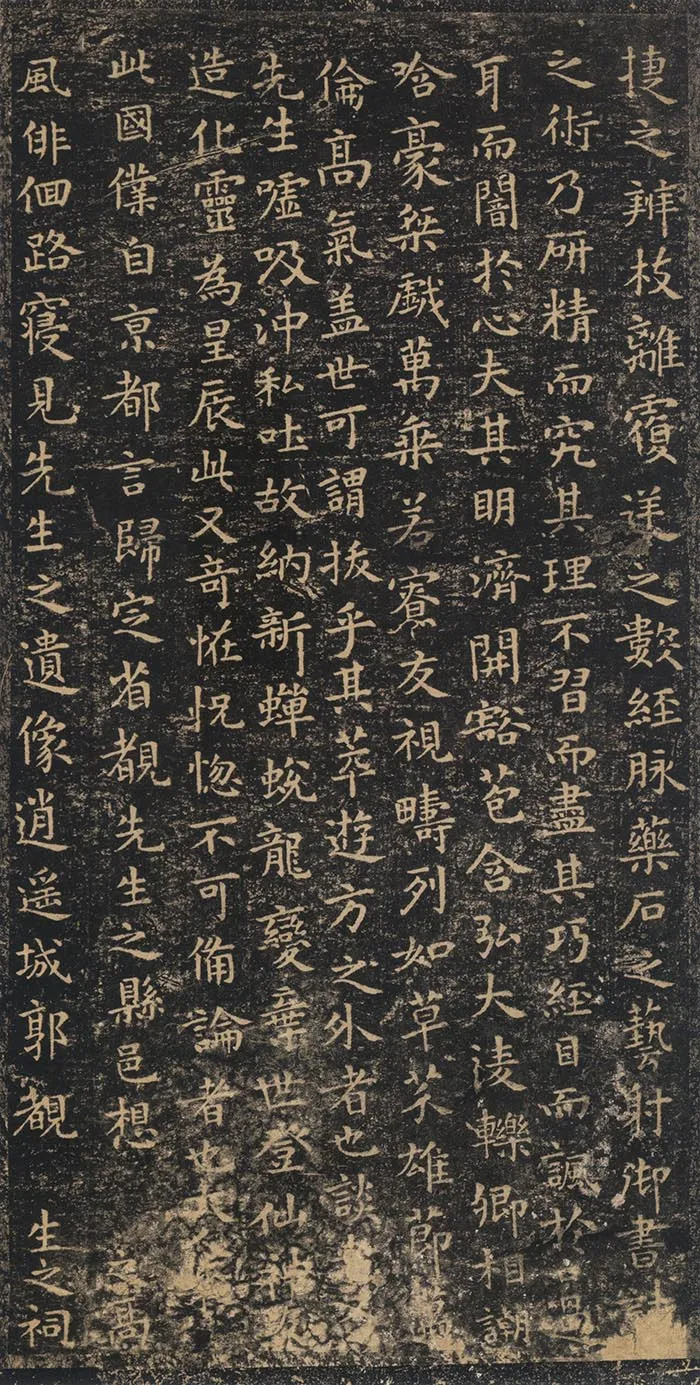 捷之辨枝離覆逆之數經脉藥石之藝射御書計
之術乃研精而究其理不習而盡其巧經目而諷於口過
耳而闇於心夫其明濟開豁苞含弘大淩轢卿相謿
哈豪桀戲萬乘若寮友視疇列如草芥雄節邁
倫高氣盖世可謂拔乎其萃遊方之外者也談者又
先生噓吸沖和吐故納新蟬蛻龍變棄世登仙神友
造化靈為星辰此又奇恠怳惚不可俻論者也大
此國僕自京都言歸定省覩先生之縣邑想之高
風俳佪路寝見先生之遺像逍遥城郭覩生之祠